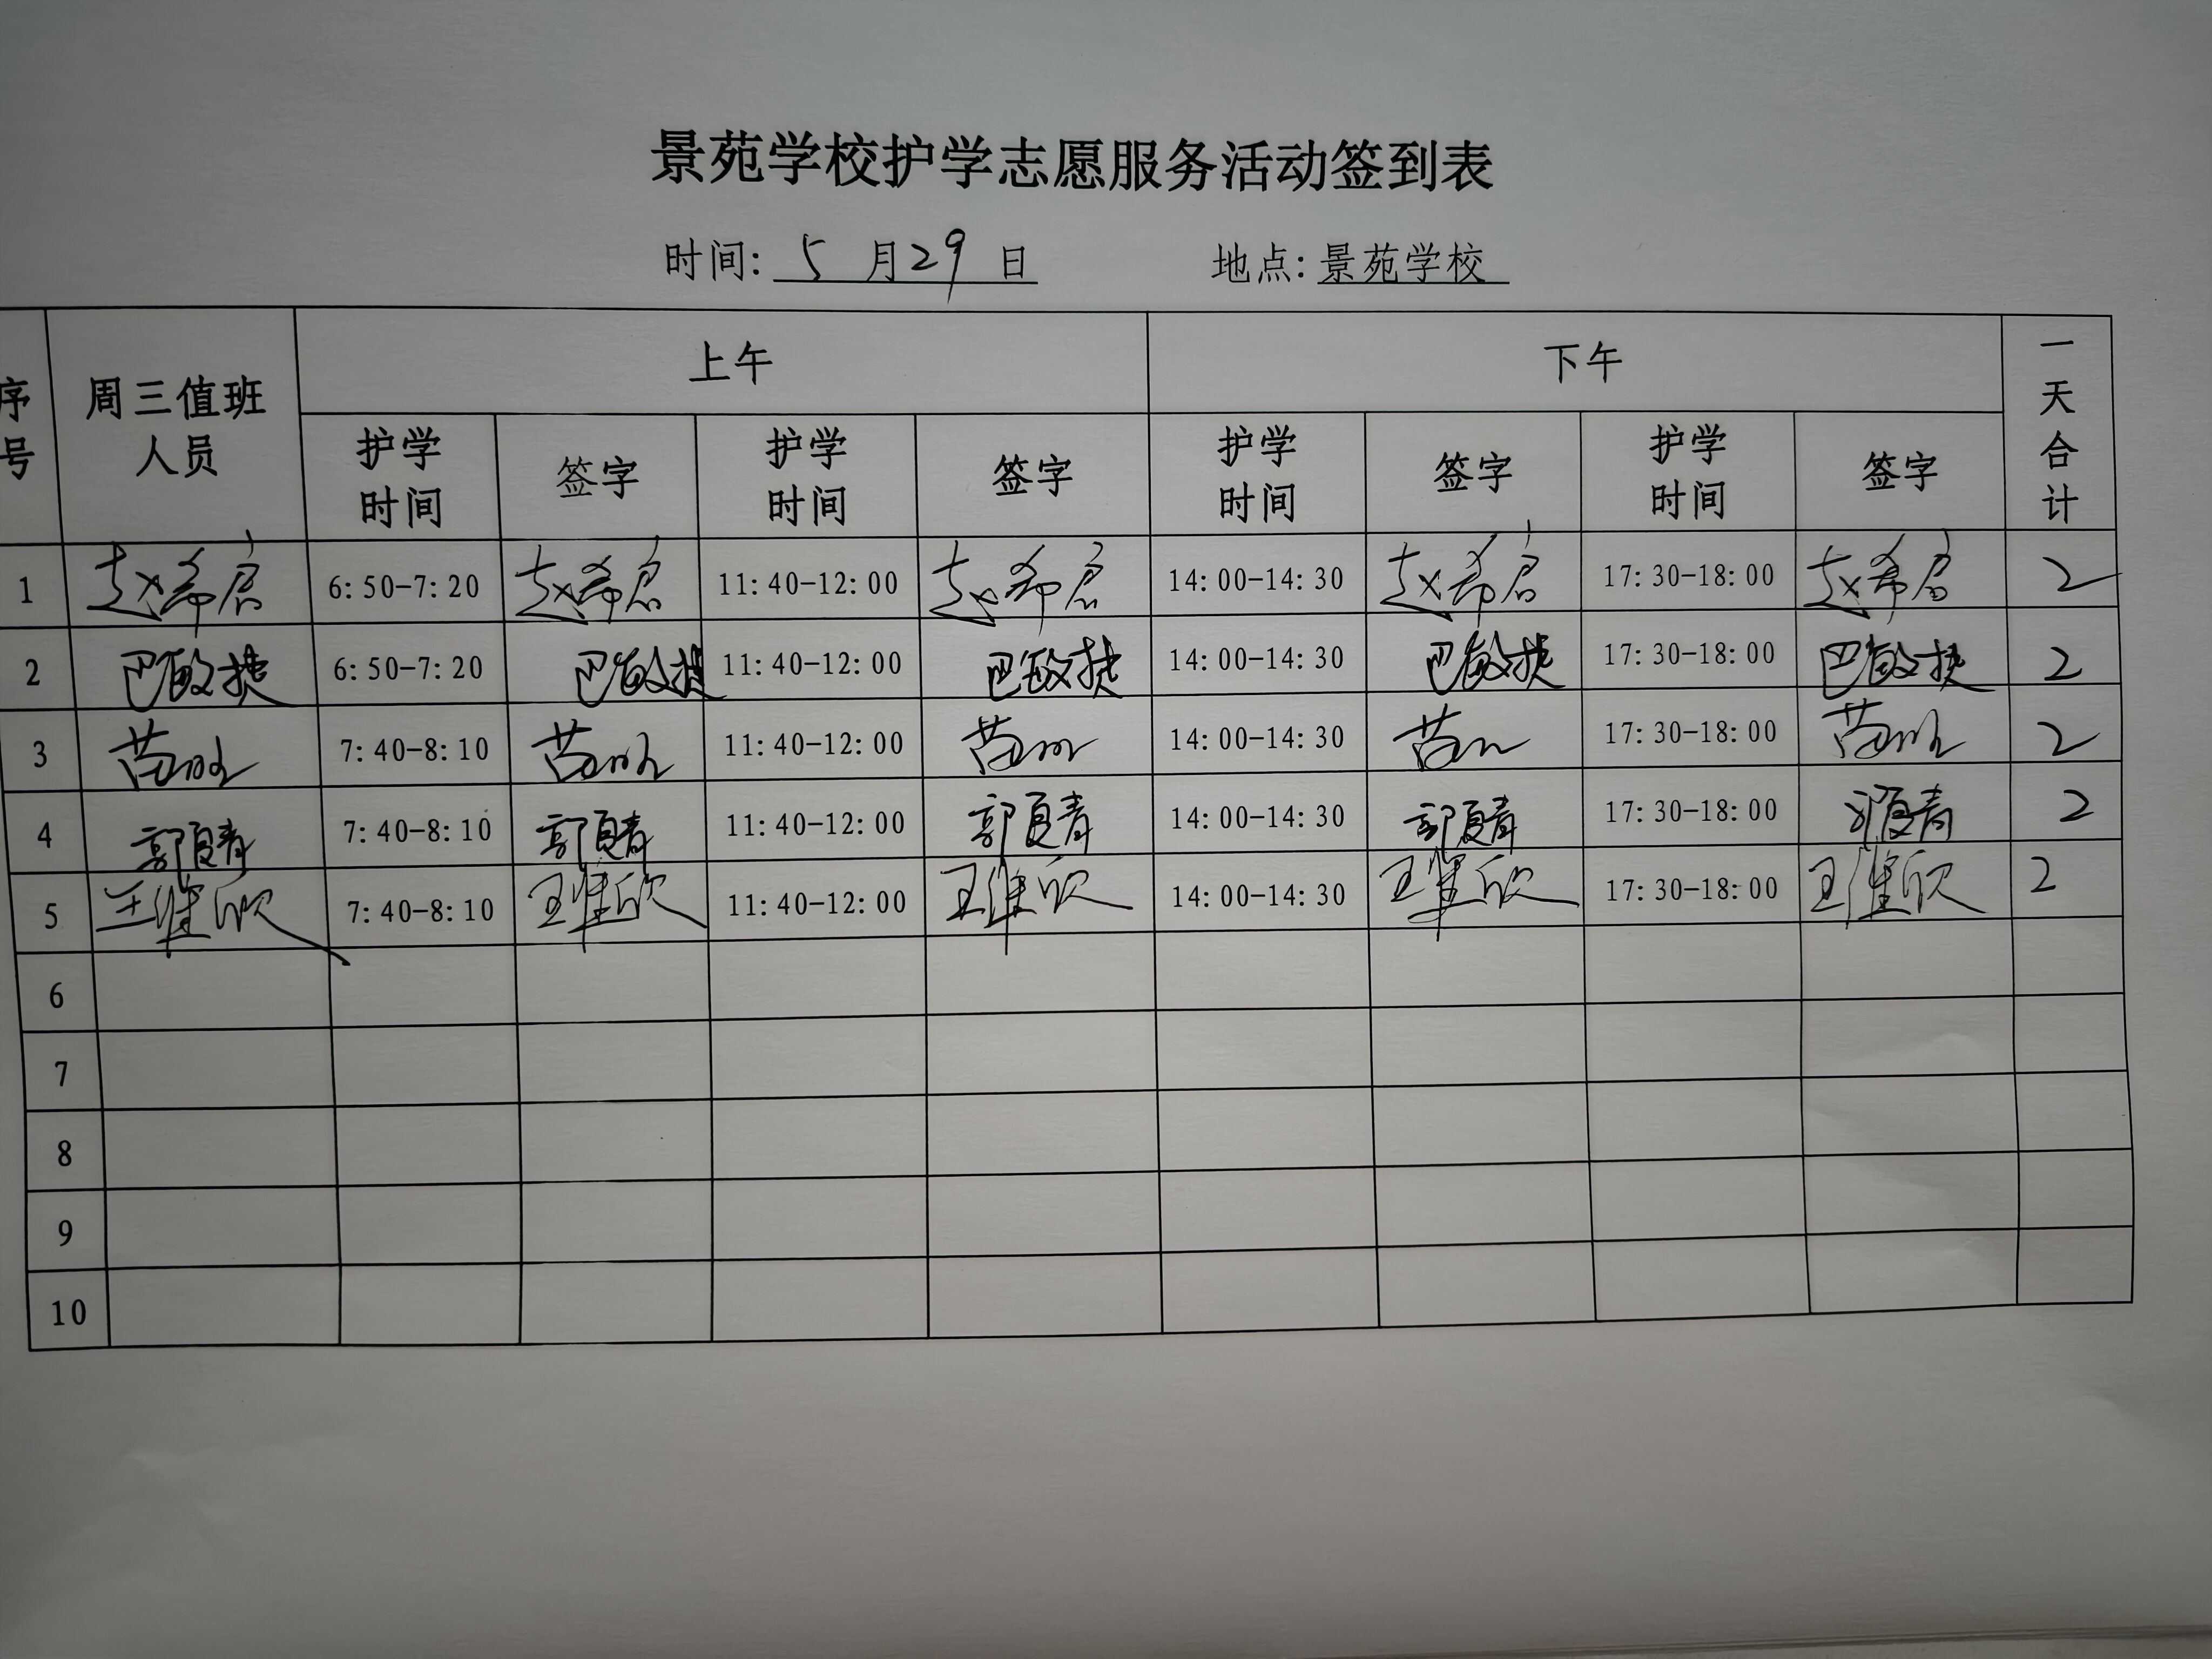 景苑学校护学志愿服务活动签到表
时间: 5 月 29 日 地点: 景苑学校
序号 周三值班人员 上午 下午 一天合计
护学时间 签字 护学时间 签字 护学时间 签字 护学时间 签字
1 赵希启 6:50-7:20 赵希启 11:40-12:00 赵希启 14:00-14:30 赵希启 17:30-18:00 赵希启 2
2 巴敏捷 6:50-7:20 巴敏捷 11:40-12:00 巴敏捷 14:00-14:30 巴敏捷 17:30-18:00 巴敏捷 2
3 苗 7:40-8:10 苗 11:40-12:00 苗 14:00-14:30 苗 17:30-18:00 苗 2
4 郭夏青 7:40-8:10 郭夏青 11:40-12:00 郭夏青 14:00-14:30 郭夏青 17:30-18:00 郭夏青 2
5 王维欣 7:40-8:10 王维欣 11:40-12:00 王维欣 14:00-14:30 王维欣 17:30-18:00 王维欣 2
6
7
8
9
10